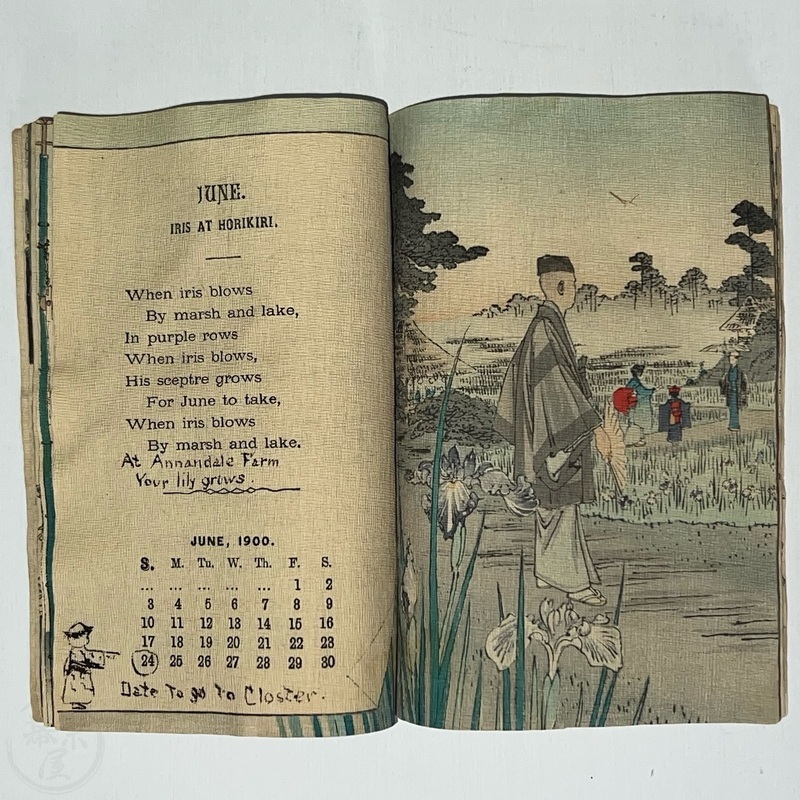 JUNE.
IRIS AT HORIKIRI.
When iris blows
By marsh and lake,
In purple rows
When iris blows,
His sceptre grows
For June to take,
When iris blows
By marsh and lake.
At Annandale Farm
Your lily grows.
JUNE, 1900.
S. M. Tu. W. Th. F. S.
... ... ... ... ... 1 2
3 4 5 6 7 8 9
10 11 12 13 14 15 16
17 18 19 20 21 22 23
24 25 26 27 28 29 30
Date to go to Closter.